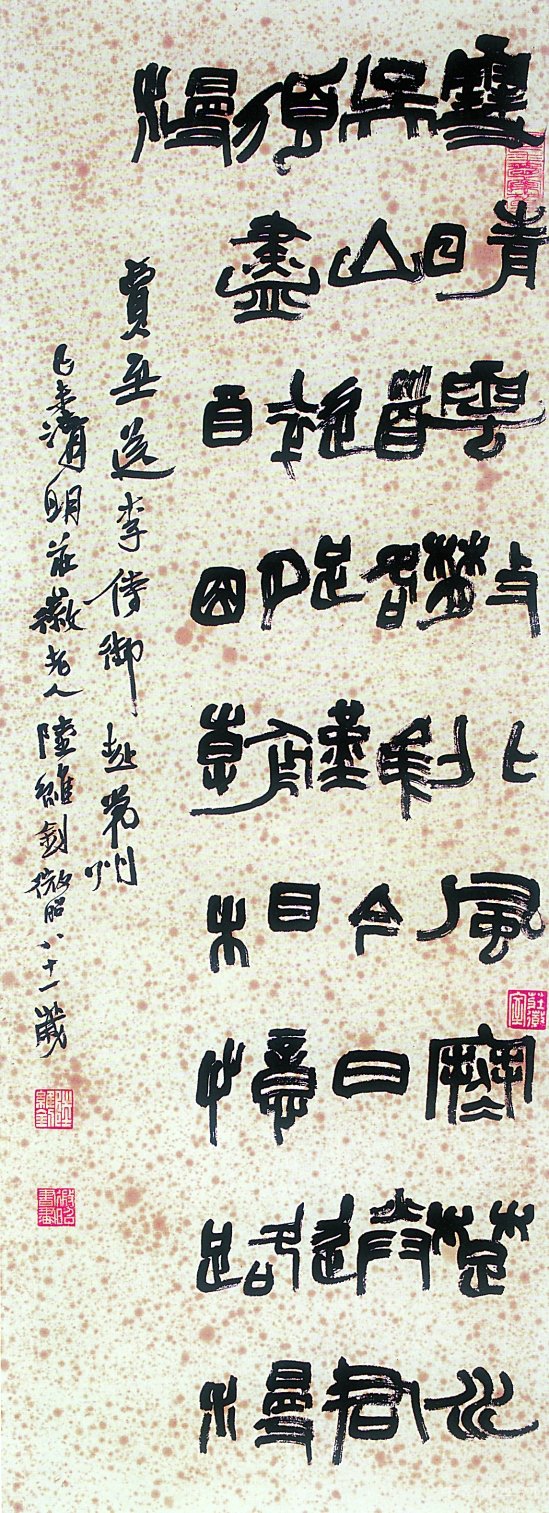 雪晴雲散北風寒楚水
吳山道路難今日送君
須盡醉明朝相憶路漫
漫
賈至送李侍御赴常州
己未清明莊徽老人陸維釗微昭八十一歲
陸維釗
微昭書畫